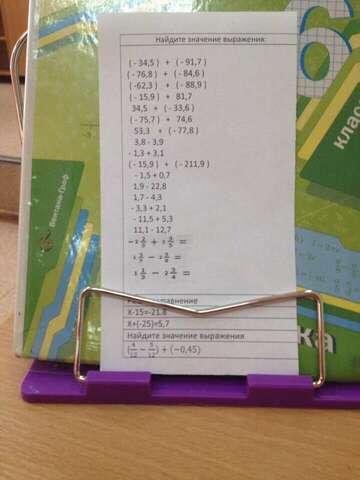 Найдите значение выражения:
( - 34,5 ) + ( - 91,7 )
( - 76,8 ) + ( - 84,6 )
(-62,3 ) + ( - 88,9 )
( - 15,9 ) + 81,7
34,5 + ( - 33,6 )
( - 75,7 ) + 74,6
53,3 + ( - 77,8 )
3,8 - 3,9
- 1,3 + 3,1
( - 15,9 ) + ( - 211,9 )
- 1,5 + 0,7
1,9 - 22,8
1,7 - 4,3
- 3,3 + 2,1
- 11,5 + 5,3
11,1 - 12,7
уравнение
X-15=-21,8
X+(-25)=5,7
Найдите значение выражения
+ (−0,45)
6
клас
Вентана-Граф
ка